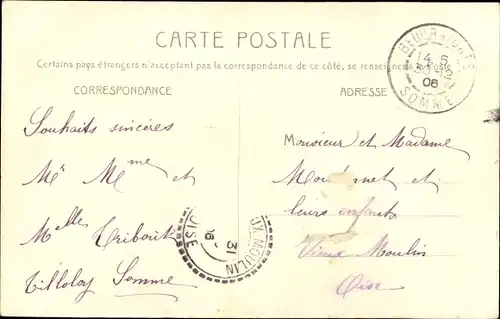 CARTE POSTALE
Certains pays étrangers n'acceptent pas la correspondance de ce côté, se renseigner à la Poste
CORRESPONDANCE
ADRESSE
SOMME
06
Souhaits sincères
Mr Mme et
Melle Tribout
Tilloloy Somme
Monsieur et Madame
et
leurs enfants
Vieux Moulin
Oise
UX MOULIN
31
OISE